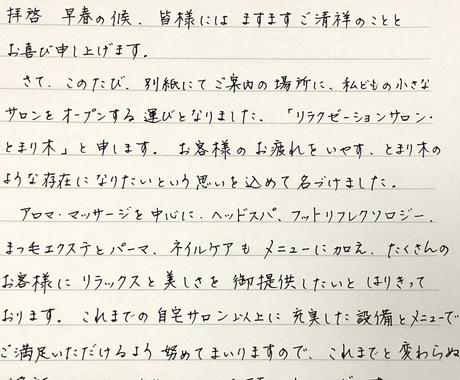 拝啓 早春の候、皆様には ますます ご清祥のことと
お喜び申し上げます。
さて、このたび、別紙にて ご案内の場所に、私どもの小さな
サロンを オープンする 運びとなりました。「リラクゼーションサロン・
とまり木」と 申します。 お客様の お疲れを いやす、とまり木の
ような存在に なりたいという 思いを 込めて 名づけました。
アロマ・マッサージを 中心に、ヘッドスパ、フットリフレクソロジー、
まつ毛エクステとパーマ、ネイルケアも メニューに加え、たくさんの
お客様に リラックスと 美しさを 御提供したいと はりきって
おります。 これまでの 自宅サロン以上に 充実した 設備とメニューで
ご満足いただけるよう 努めてまいりますので、これまでと 変わらぬ